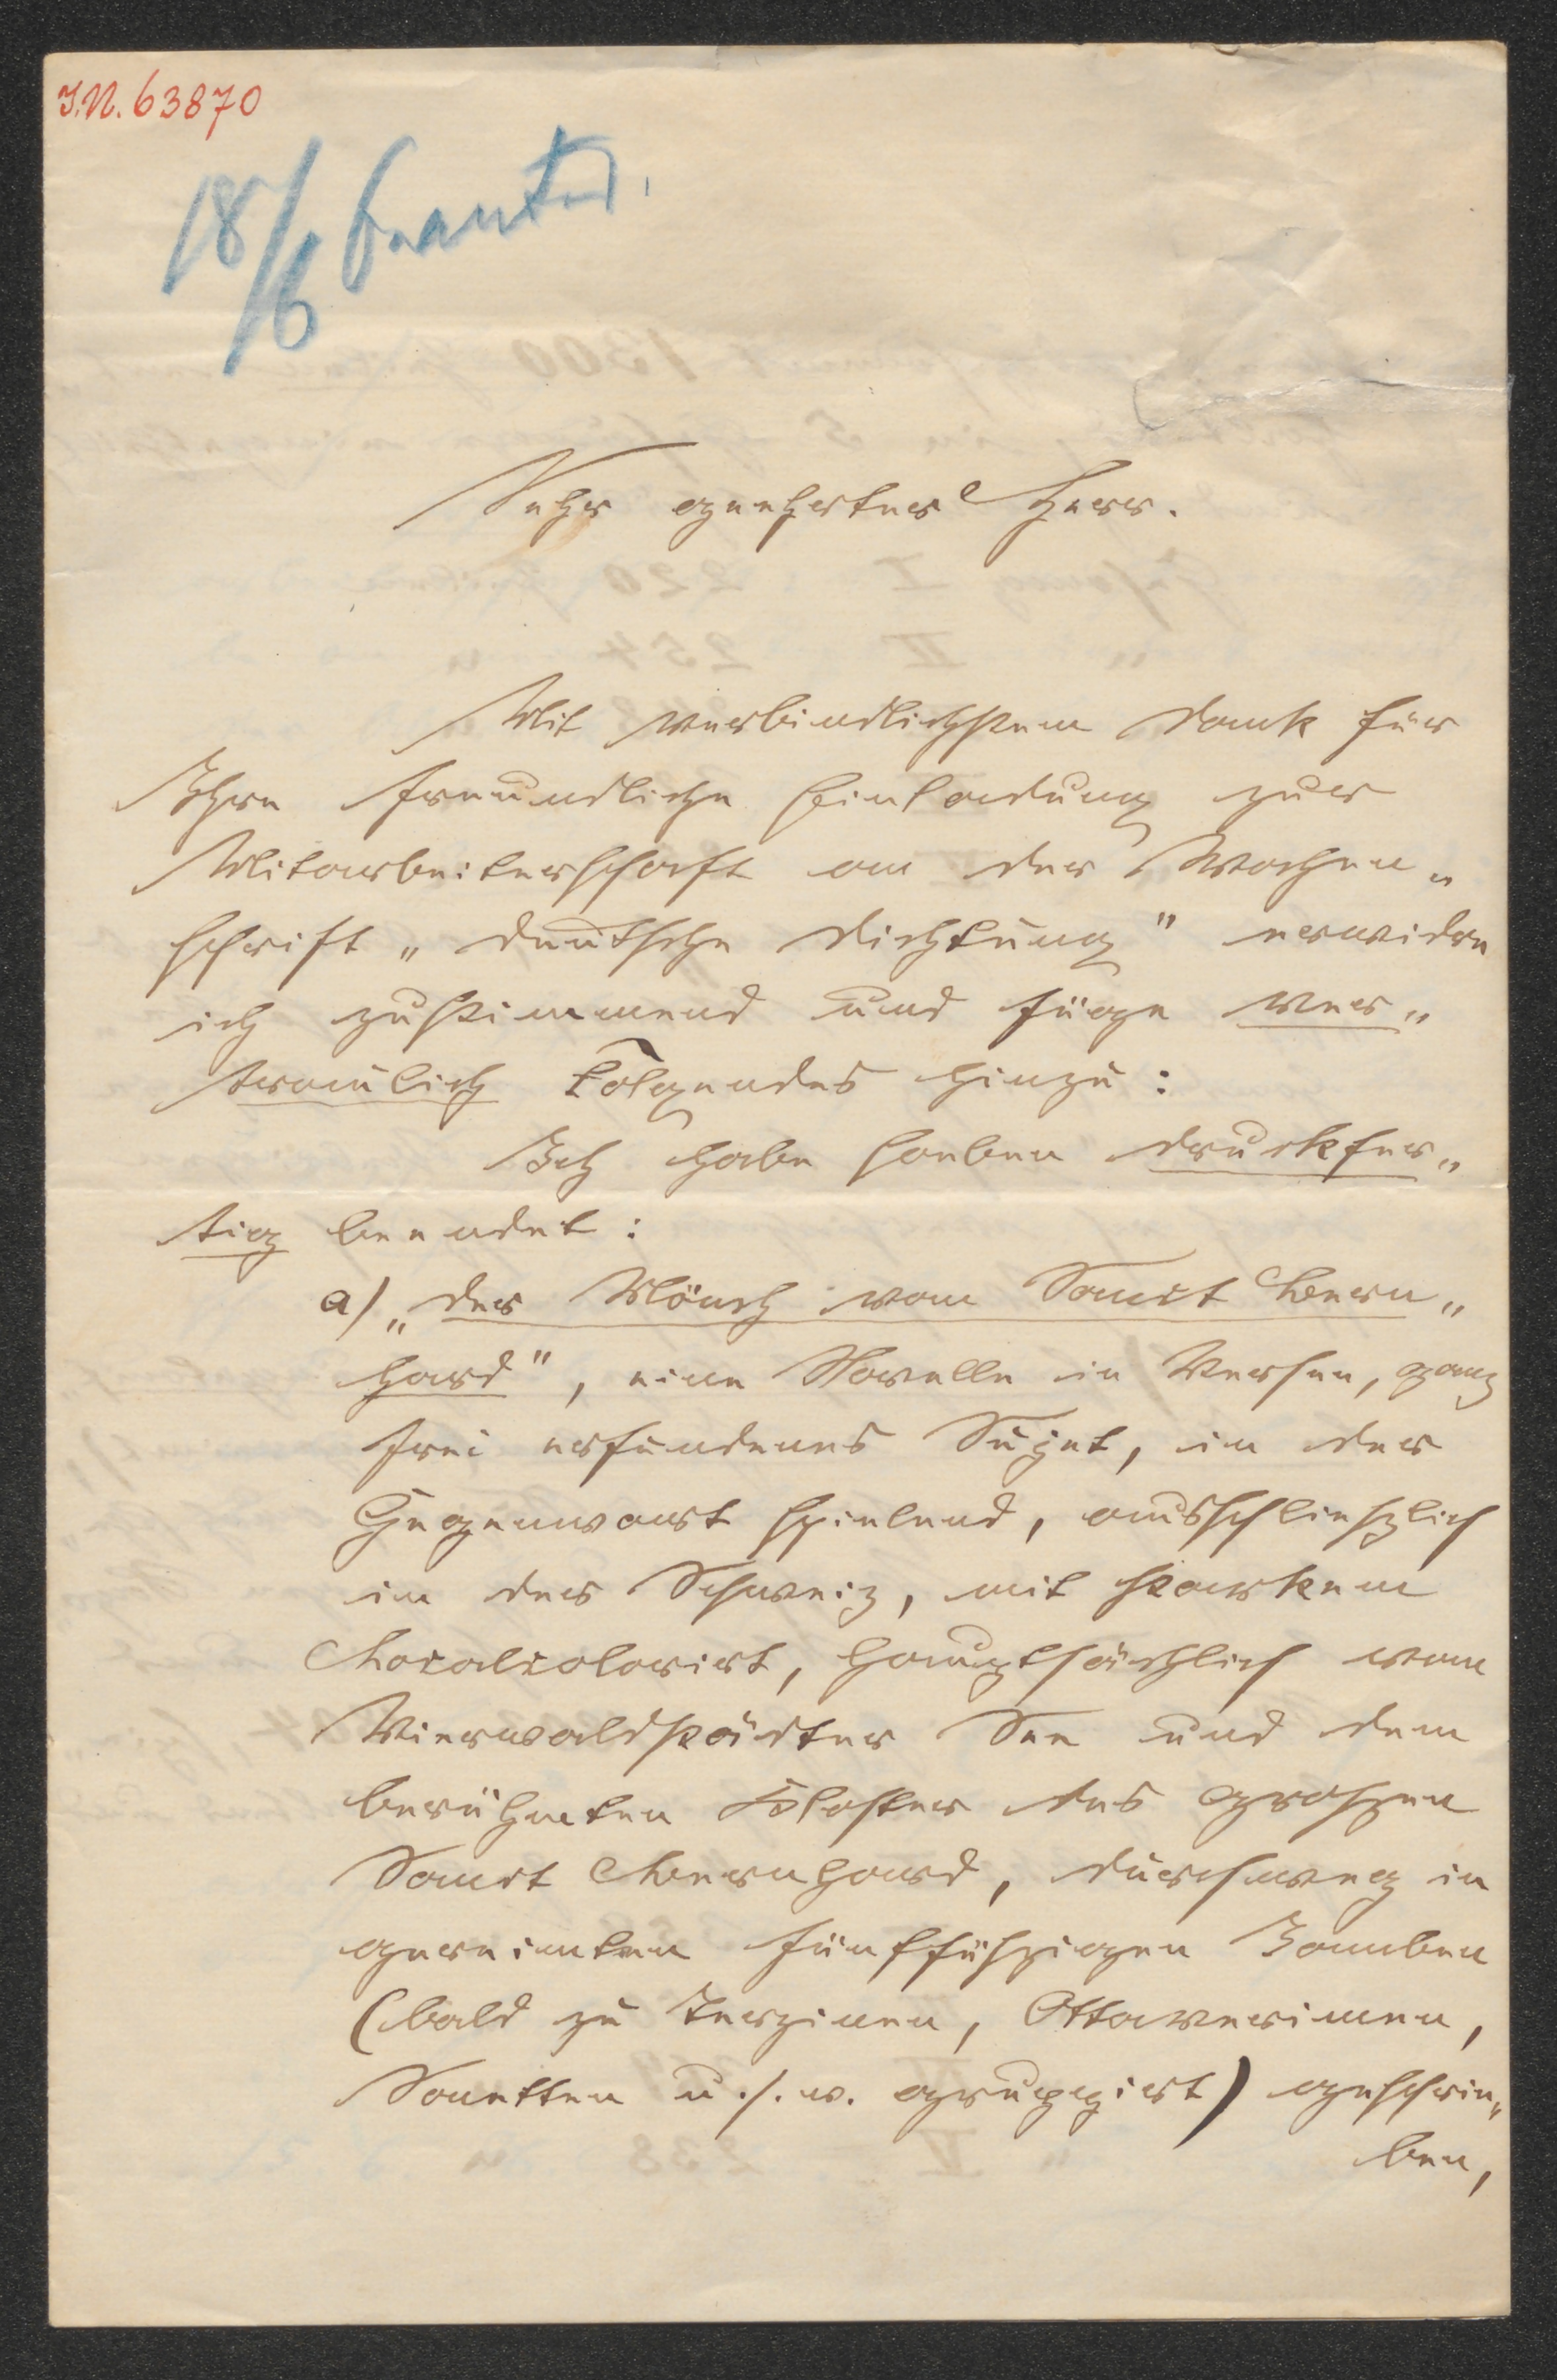 I.N. 63870
18/6 beantw.
Sehr geehrter Herr.
Mit verbindlichstem Dank für
Ihre freundliche Einladung zur
Mitarbeiterschaft an der Wochen„
schrift „Deutsche Dichtung" erwidre
ich zustimmend und füge ver„
traulich Folgendes hinzu:
Ich habe soeben druckfer„
tig beendet:
a) „Der Mönch vom Sanct Bern„
hard", eine Novelle in Versen, ganz
frei erfundenes Sujet, in der
Gegenwart spielend, ausschließlich
in der Schweiz, mit starkem
Localcolorirt, hauptsächlich vom
Vierwaldstädter See und dem
berühmten Kloster des großen
Sanct Bernhard, durchweg in
gereimten fünffüßigen Jamben
(bald zu Terzinen, Ottaverimen,
Sonetten u. s. w. gruppiert) geschrie„
ben,